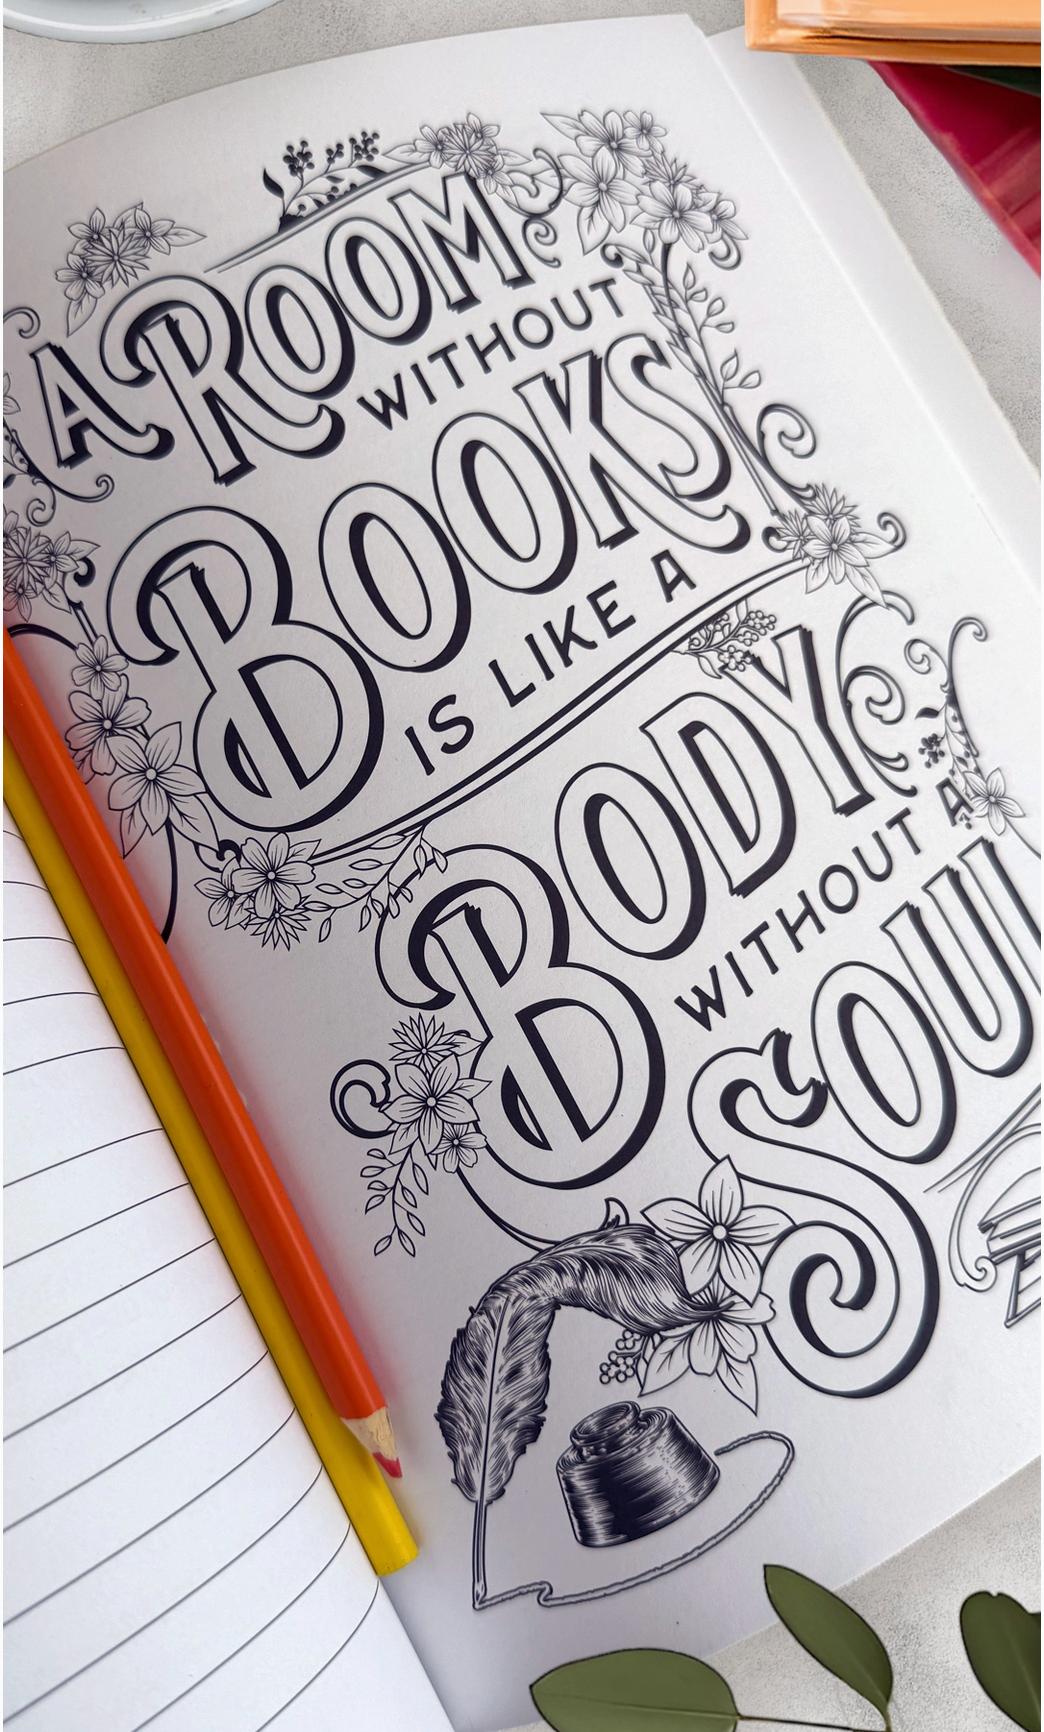 A ROOM
WITHOUT
BOOKS
IS LIKE A
BODY
WITHOUT A
SOUL